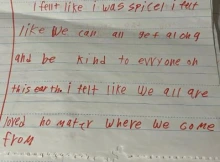 I felt like i was spicel i felt
like we can all get along
and be kind to evryone on
this earth i felt like we all are
loved no matter where we come
from